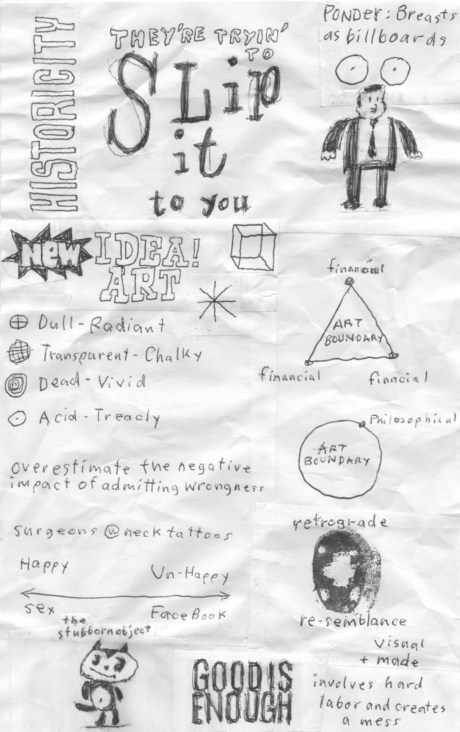 HISTORICITY
THEY'RE TRYIN'
TO
SLip
it
to you
PONDER: Breasts
as billboards
New
IDEA!
ART
Dull-Radiant
Transparent-Chalky
Dead-Vivid
Acid-Treacly
overestimate the negative
impact of admitting wrongness
financial
ART
BOUNDARY
financial
financial
Philosophical
ART
BOUNDARY
surgeons w neck tattoos
Happy
Un-Happy
sex
FaceBook
retrograde
re-semblance
the
stubborn object
GOOD IS
ENOUGH
visual
+ made
involves hard
labor and creates
a mess